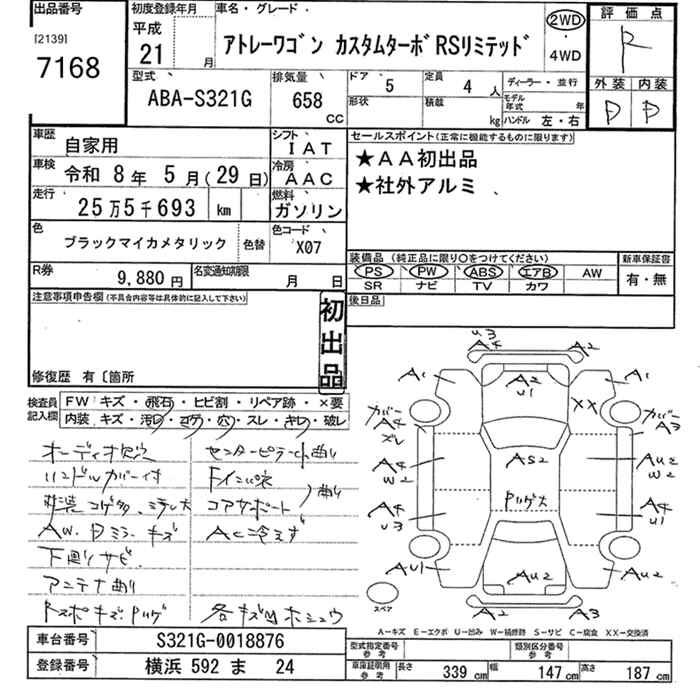 出品番号
[2139]
7168
初度登録年月
平成
21 月
車名・グレード
アトレーワゴン カスタムターボRSリミテッド
2WD
・
4WD
評価点
R
外装 内装
D D
型式
ABA-S321G
排気量
658
CC
ドア
5
定員
4 人
ディーラー・並行
形状
積載
kg
モデル年式 年
ハンドル 左・右
車歴
自家用
シフト
IAT
車検
令和 8年 5月(29日)
冷房
AAC
走行
25万5千693 km
燃料
ガソリン
色
ブラックマイカメタリック
色替
色コード
X07
R券
9,880 円
名変通知期限
月 日
セールスポイント(正常に機能するものに限ります)
★AA初出品
★社外アルミ
装備品 (純正品に限り○をつけてください)
PS PW ABS エアB AW
SR ナビ TV カワ
新車保証書
有・無
後日品
注意事項申告欄(不具合内容等は具体的に記入して下さい)
初出品
修復歴 有〔箇所
検査員記入欄
FW キズ・飛石・ヒビ割・リペア跡・×要
内装 キズ・汚レ・コゲ・穴・スレ・キレ・破レ
オーディオ欠穴
ハンドルカバー付
AW、Dミラーキズ
下廻リサビ
アンテナ曲り
センターピラー曲り
コアサポート 曲り
AC冷えず
各キズ凹ホシュウ
U3
A4
A2
A1
A2
U1
A1
XX
カバー
A4
カバー
A3
A4
W2
AS2
AU2
W2
A4
U3
A4
U1
AU1
AU2
AU2
A2
A3
スペア
A−キズ E−エクボ U−凹み W−補修跡 S−サビ C−腐食 XX−交換済
車台番号
S321G-0018876
登録番号
横浜 592 ま 24
型式指定番号
参考
類別区分番号
参考
車庫証明用
参考
長さ 339 cm 幅 147 cm 高さ 187 cm